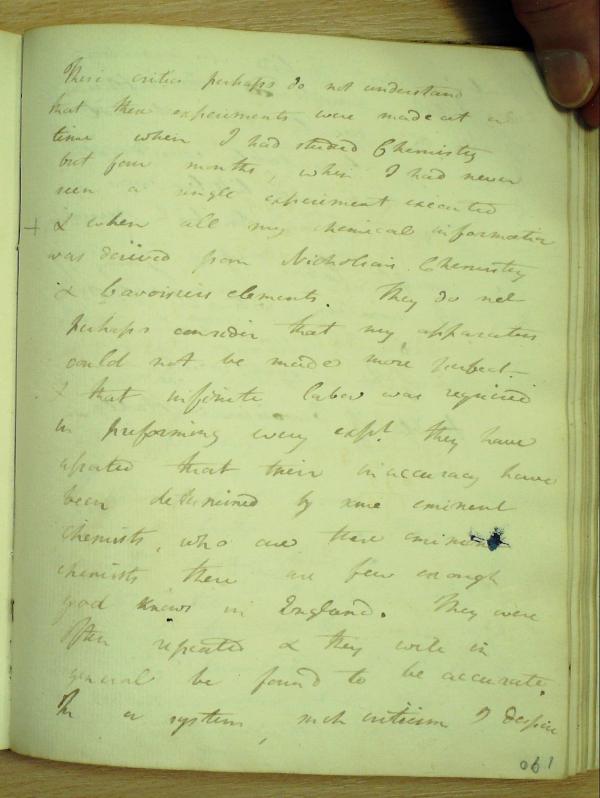 These critics perhaps do not understand
that these experiments were made at a
time when I had studied Chemistry
but four months, when I had never
seen a single experiment executed
+ & when all my chemical information
was derived from Nicholson's Chemistry
& Lavoisiers elements. They do not
perhaps consider that my apparatus
could not be made more perfect
& that infinite labor was required
in preforming every expt. they have
asserted that their inaccuracy have
been determined by some eminent
chemists, who are these eminent
chemists there are few enough
god knows in England. They were
often repeated & they will in
general be found to be accurate.
In a system, such criticism I despise
190